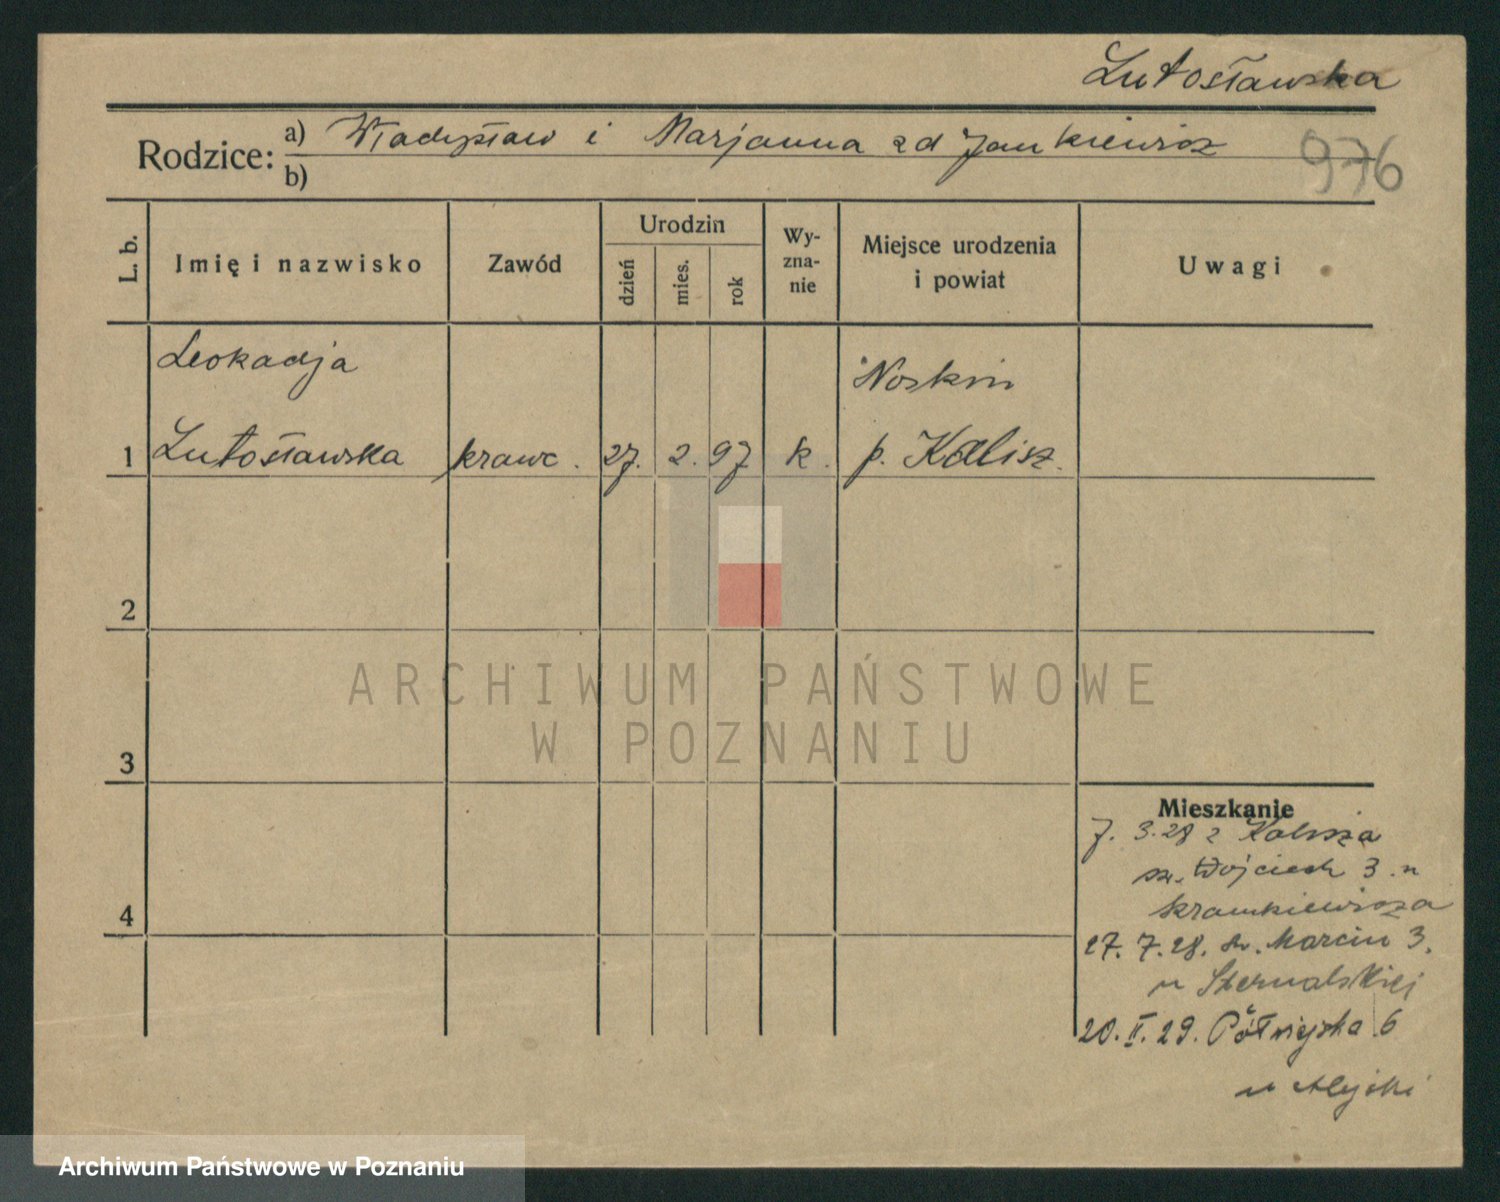 Lutosławska
Rodzice: a) Władysław i Marjanna zd Jankiewicz
b)
976
L. b.
Imię i nazwisko
Zawód
Urodzin
dzień
mies.
rok
Wy-
zna-
nie
Miejsce urodzenia
i powiat
Uwagi
Leokadja
Noskin
1 Lutosławska krawc. 27. 2. 97 k. p. Kalisz.
2
3
4
Mieszkanie
7. 3. 28 z Kalisza
św. Wojciech 3. u
27. 7. 28. św. Marcin 3.
u
20. II. 29. Półwiejska 6
u
ARCHIWUM PAŃSTWOWE
W POZNANIU
Archiwum Państwowe w Poznaniu